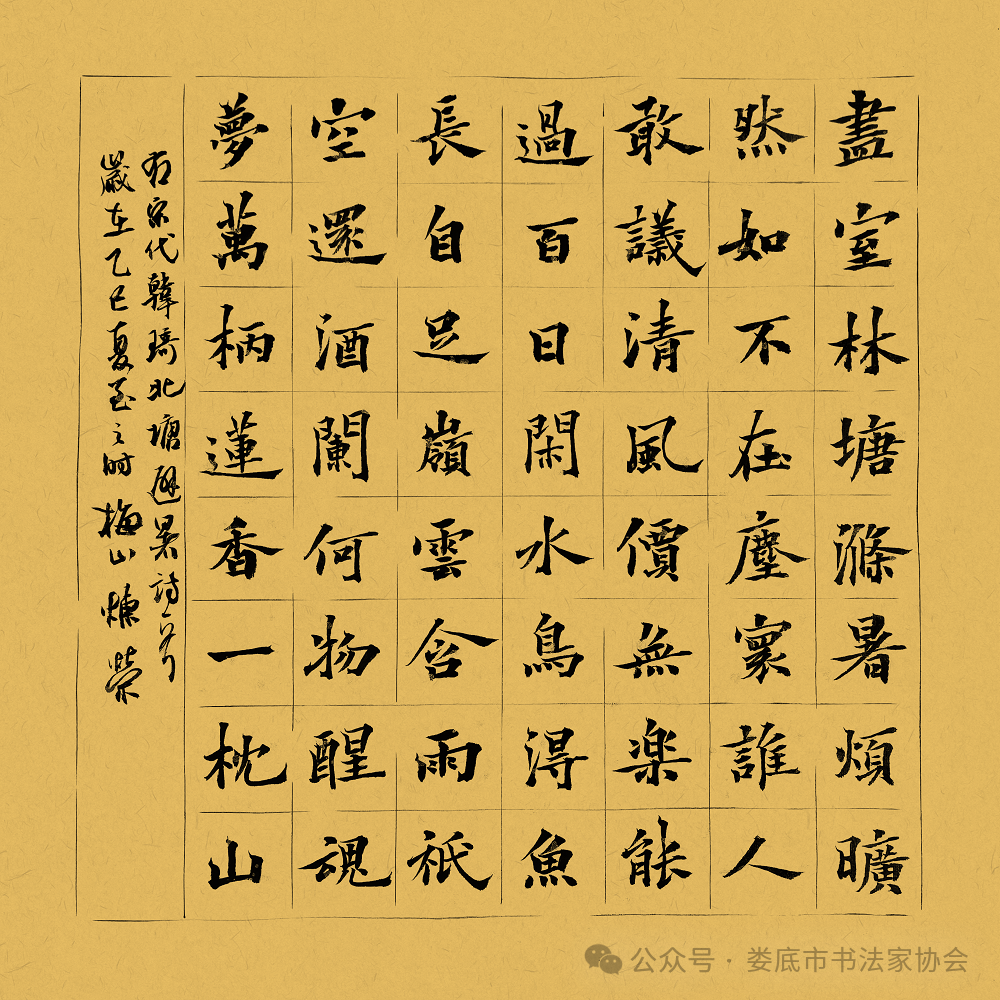 盡室林塘滌暑煩曠
然如不在塵寰誰人
敢議清風價無楽能
過百日閑水鳥得魚
長自足嶺雲含雨祇
空還酒闌何物醒魂
夢萬柄蓮香一枕山
右宋代韓琦北塘避暑詩一首
歲在乙巳夏至之時梅山煉榮
公众号·娄底市书法家协会